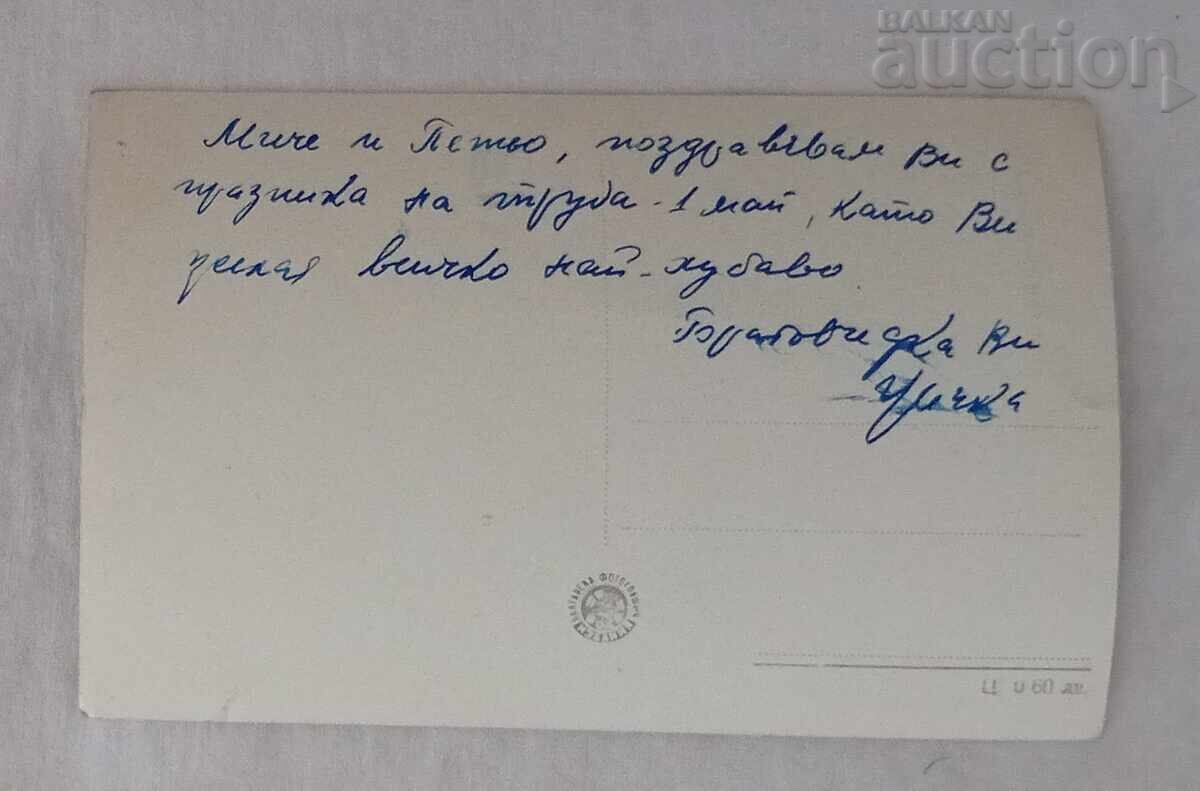 BALKAN
auction
Миче и Петьо, поздравявам Ви с
празника на труда - 1 май, като Ви
желая всичко най-хубаво
Братовчедка Ви
БЪЛГАРСКА ФОТОГРАФИЯ
Ц. 0 60 лв.